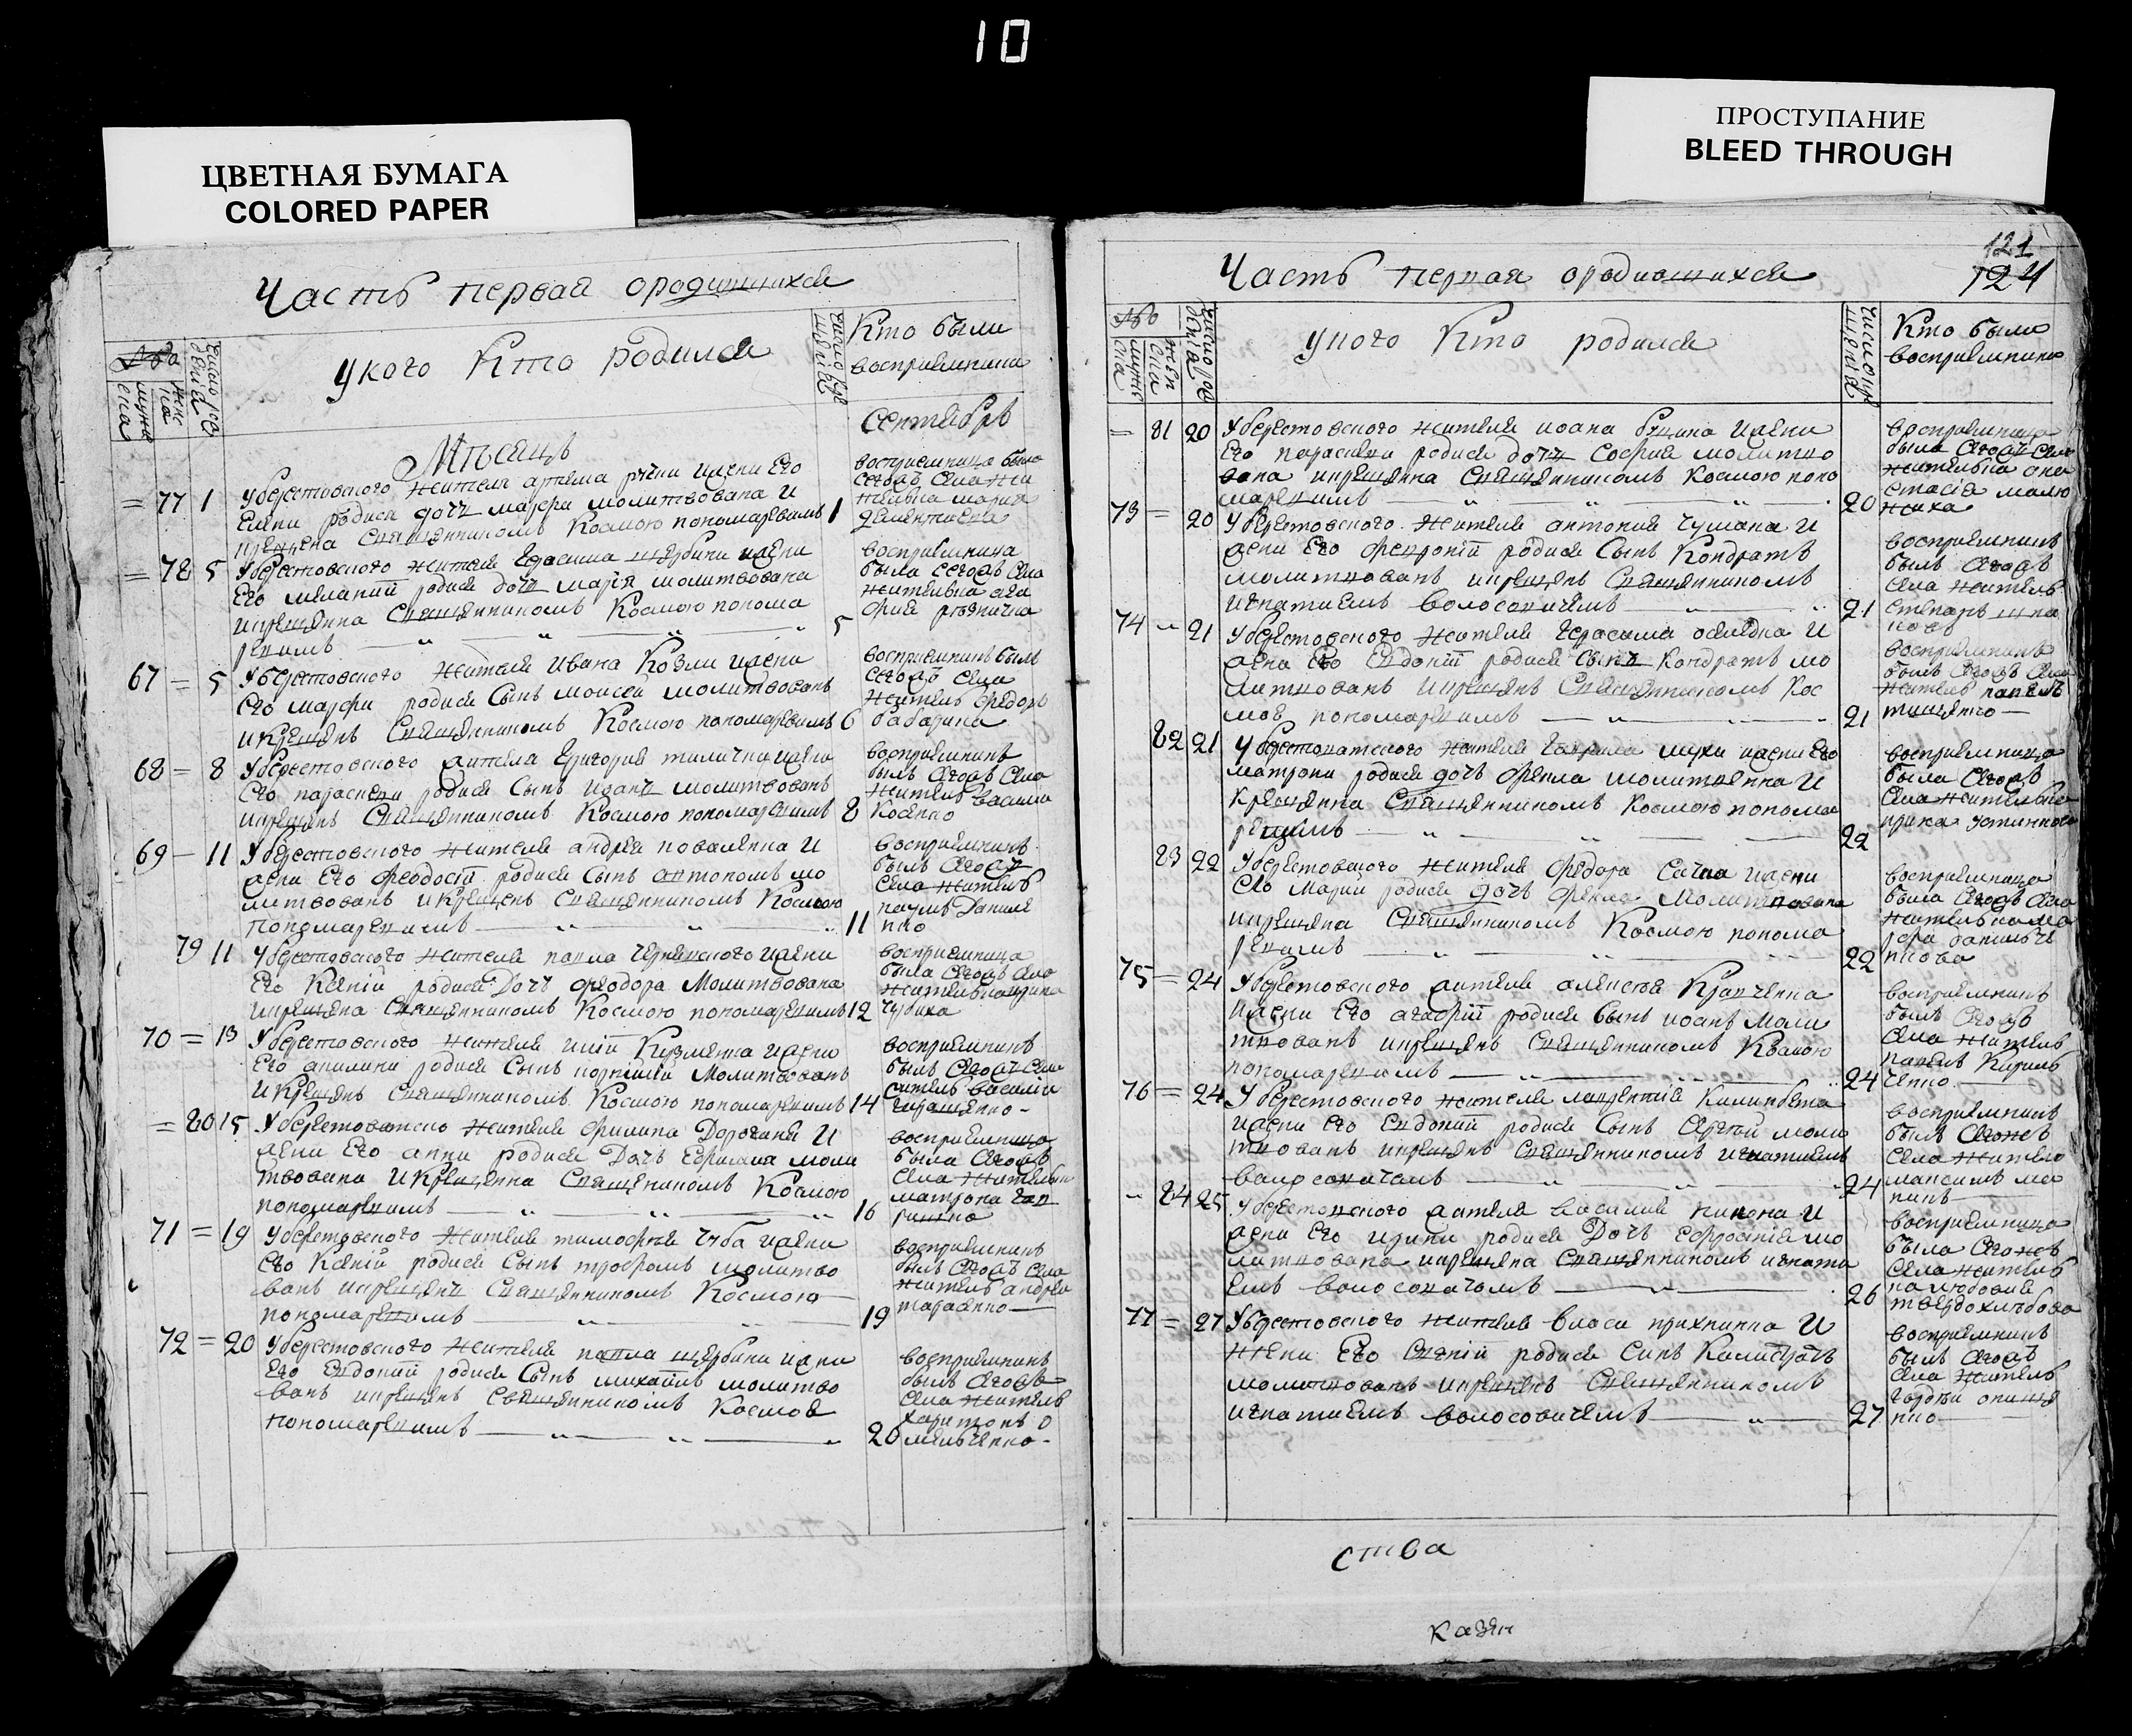 10
ЦВЕТНАЯ БУМАГА
COLORED PAPER
ПРОСТУПАНИЕ
BLEED THROUGH
Часть первая ородишихся
укого Кто родился
Кто были
восприемники
Мѣсяцъ
сентябрь
= 77 1 Уберестовского жителя артема ... ижени Его
Елени родися дочъ марфа молитвована и
крещена Священникомъ Космою пономаревимъ 1
восприемница была
сегожъ села жи
телька мария
дементиева
= 78 5 Уберестовского жителя Герасима щербини ижени
Его меланий родися дочъ мария молитвована
икрещенна Священникомъ Космою понома
ревимъ 5
восприемница
была сегожъ села
жителька ага
фия резничка
67 = 5 Уберестовского жителя Ивана Козли ижени
Его марфи родися Сынъ моисей молитвованъ
икрещенъ Священникомъ Космою пономаревимъ 6
восприемникъ былъ
сегожъ села
житель федоръ
бабарика
68 = 8 Уберестовского жителя Григория ... ижени
Его параскеви родися Сынъ иоанъ молитвованъ
икрещенъ Священникомъ Космою пономаревимъ 8
восприемникъ
былъ сегожъ села
житель васили
Косенко
69 – 11 Уберестовского жителя андрея коваленка и
жени Его феодосий родися Сынъ антономъ мо
литвованъ икрещенъ Священникомъ Космою
пономаревимъ 11
восприемникъ
былъ сегожъ
села житель
наумъ Даниле
нко
79 11 Уберестовского жителя павла Чернявского ижени
Его Ксений родися Дочъ феодора Молитвована
икрещена Священникомъ Космою пономаревимъ 12
восприемница
была сегожъ села
жителька ирина
Чубиха
70 = 13 Уберестовского жителя илий Кузменка ижени
Его акилини родися Сынъ корнилий Молитвованъ
икрещенъ Священникомъ Космою пономаревимъ 14
восприемникъ
былъ сегожъ села
житель василий
гиращенко
= 80 15 Уберестовского жителя филипа Дорогани и
жени Его анни родися Дочъ Ефимия моли
твована икрещенна Священикомъ Космою
пономаревимъ 16
восприемница
была сегожъ
села жителька
матрона гав
ришко
71 = 19 Уберестовского жителя тимофея Чуба ижени
Его Ксений родися Сынъ трофимъ молитво
ванъ икрещенъ Священникомъ Космою
пономаревимъ 19
восприемникъ
былъ сегожъ села
житель андрей
тарасенко
72 = 20 Уберестовского жителя павла щербини ижени
Его Евдокий родися Сынъ михаилъ молитво
ванъ икрещенъ Священникомъ Космов
пономаревимъ 20
восприемникъ
былъ сегожъ
села житель
харитонъ о
мельченко
121
124
Часть первая ородившихся
укого Кто родился
Кто были
восприемники
= 81 20 Уберестовского жителя иоана ... ижени
Его параскеви родися дочъ София молитво
вана икрещенна Священникомъ Космою поно
маревимъ 20
восприемница
была сегожъ села
жителька ана
стасия малю
жиха
73 = 20 Уберестовского жителя антония Чумака и
жени Его февроний родися Сынъ Кондратъ
молитвованъ икрещенъ Священникомъ
игнатиемъ волосовичемъ 21
восприемникъ
былъ сегожъ
села житель
степанъ шпа
ковъ
74 21 Уберестовского жителя герасима оселедка и
жени Его Евдокий родися Сынъ Кондратъ мо
литвованъ икрещенъ Священникомъ Кос
мов пономаревимъ 21
восприемникъ
былъ сегожъ села
житель павелъ
тищенко
82 21 Уберестовского жителя гаврила мухи ижени Его
матрони родися дочъ фекла молитвенна и
крещенна Священникомъ Космою понома
ревимъ 22
восприемница
была сегожъ
села жителька
ирина устинкова
83 22 Уберестовского жителя федора ... ижени
Его Марии родися дочъ фекла Молитвована
икрещена Священникомъ Космою понома
ревимъ 22
восприемница
была сегожъ села
жителька ма
рфа данильче
нкова
75 = 24 Уберестовского жителя алексея Кравченка
ижени Его агафий родися Сынъ иоанъ Моли
твованъ икрещенъ Священникомъ Космою
пономаревимъ 24
восприемникъ
былъ сегожъ
села житель
павелъ Кирил
ченко
76 = 24 Уберестовского жителя лаврентия Калинбета
ижени Его Евдокий родися Сынъ Сергий моли
твованъ икрещенъ Священникомъ игнатиемъ
волосовичемъ 24
восприемникъ
былъ сегожъ
села жителъ
максимъ ма
кивъ
84 25 Уберестовского жителя василия никона и
жени Его ирини родися Дочъ Ефросиния мо
литвована икрещена Священникомъ игнати
емъ волосовичемъ 26
восприемница
была сегожъ
села житель
ка любовия
твердохлебова
77 = 27 Уберестовского жителя власи прихинка и
жени Его Евгений родися Синъ Калистратъ
молитвованъ икрещенъ Священникомъ
игнатиемъ волосовичемъ 27
восприемникъ
былъ сегожъ
села житель
гордей онище
нко
ства
казен